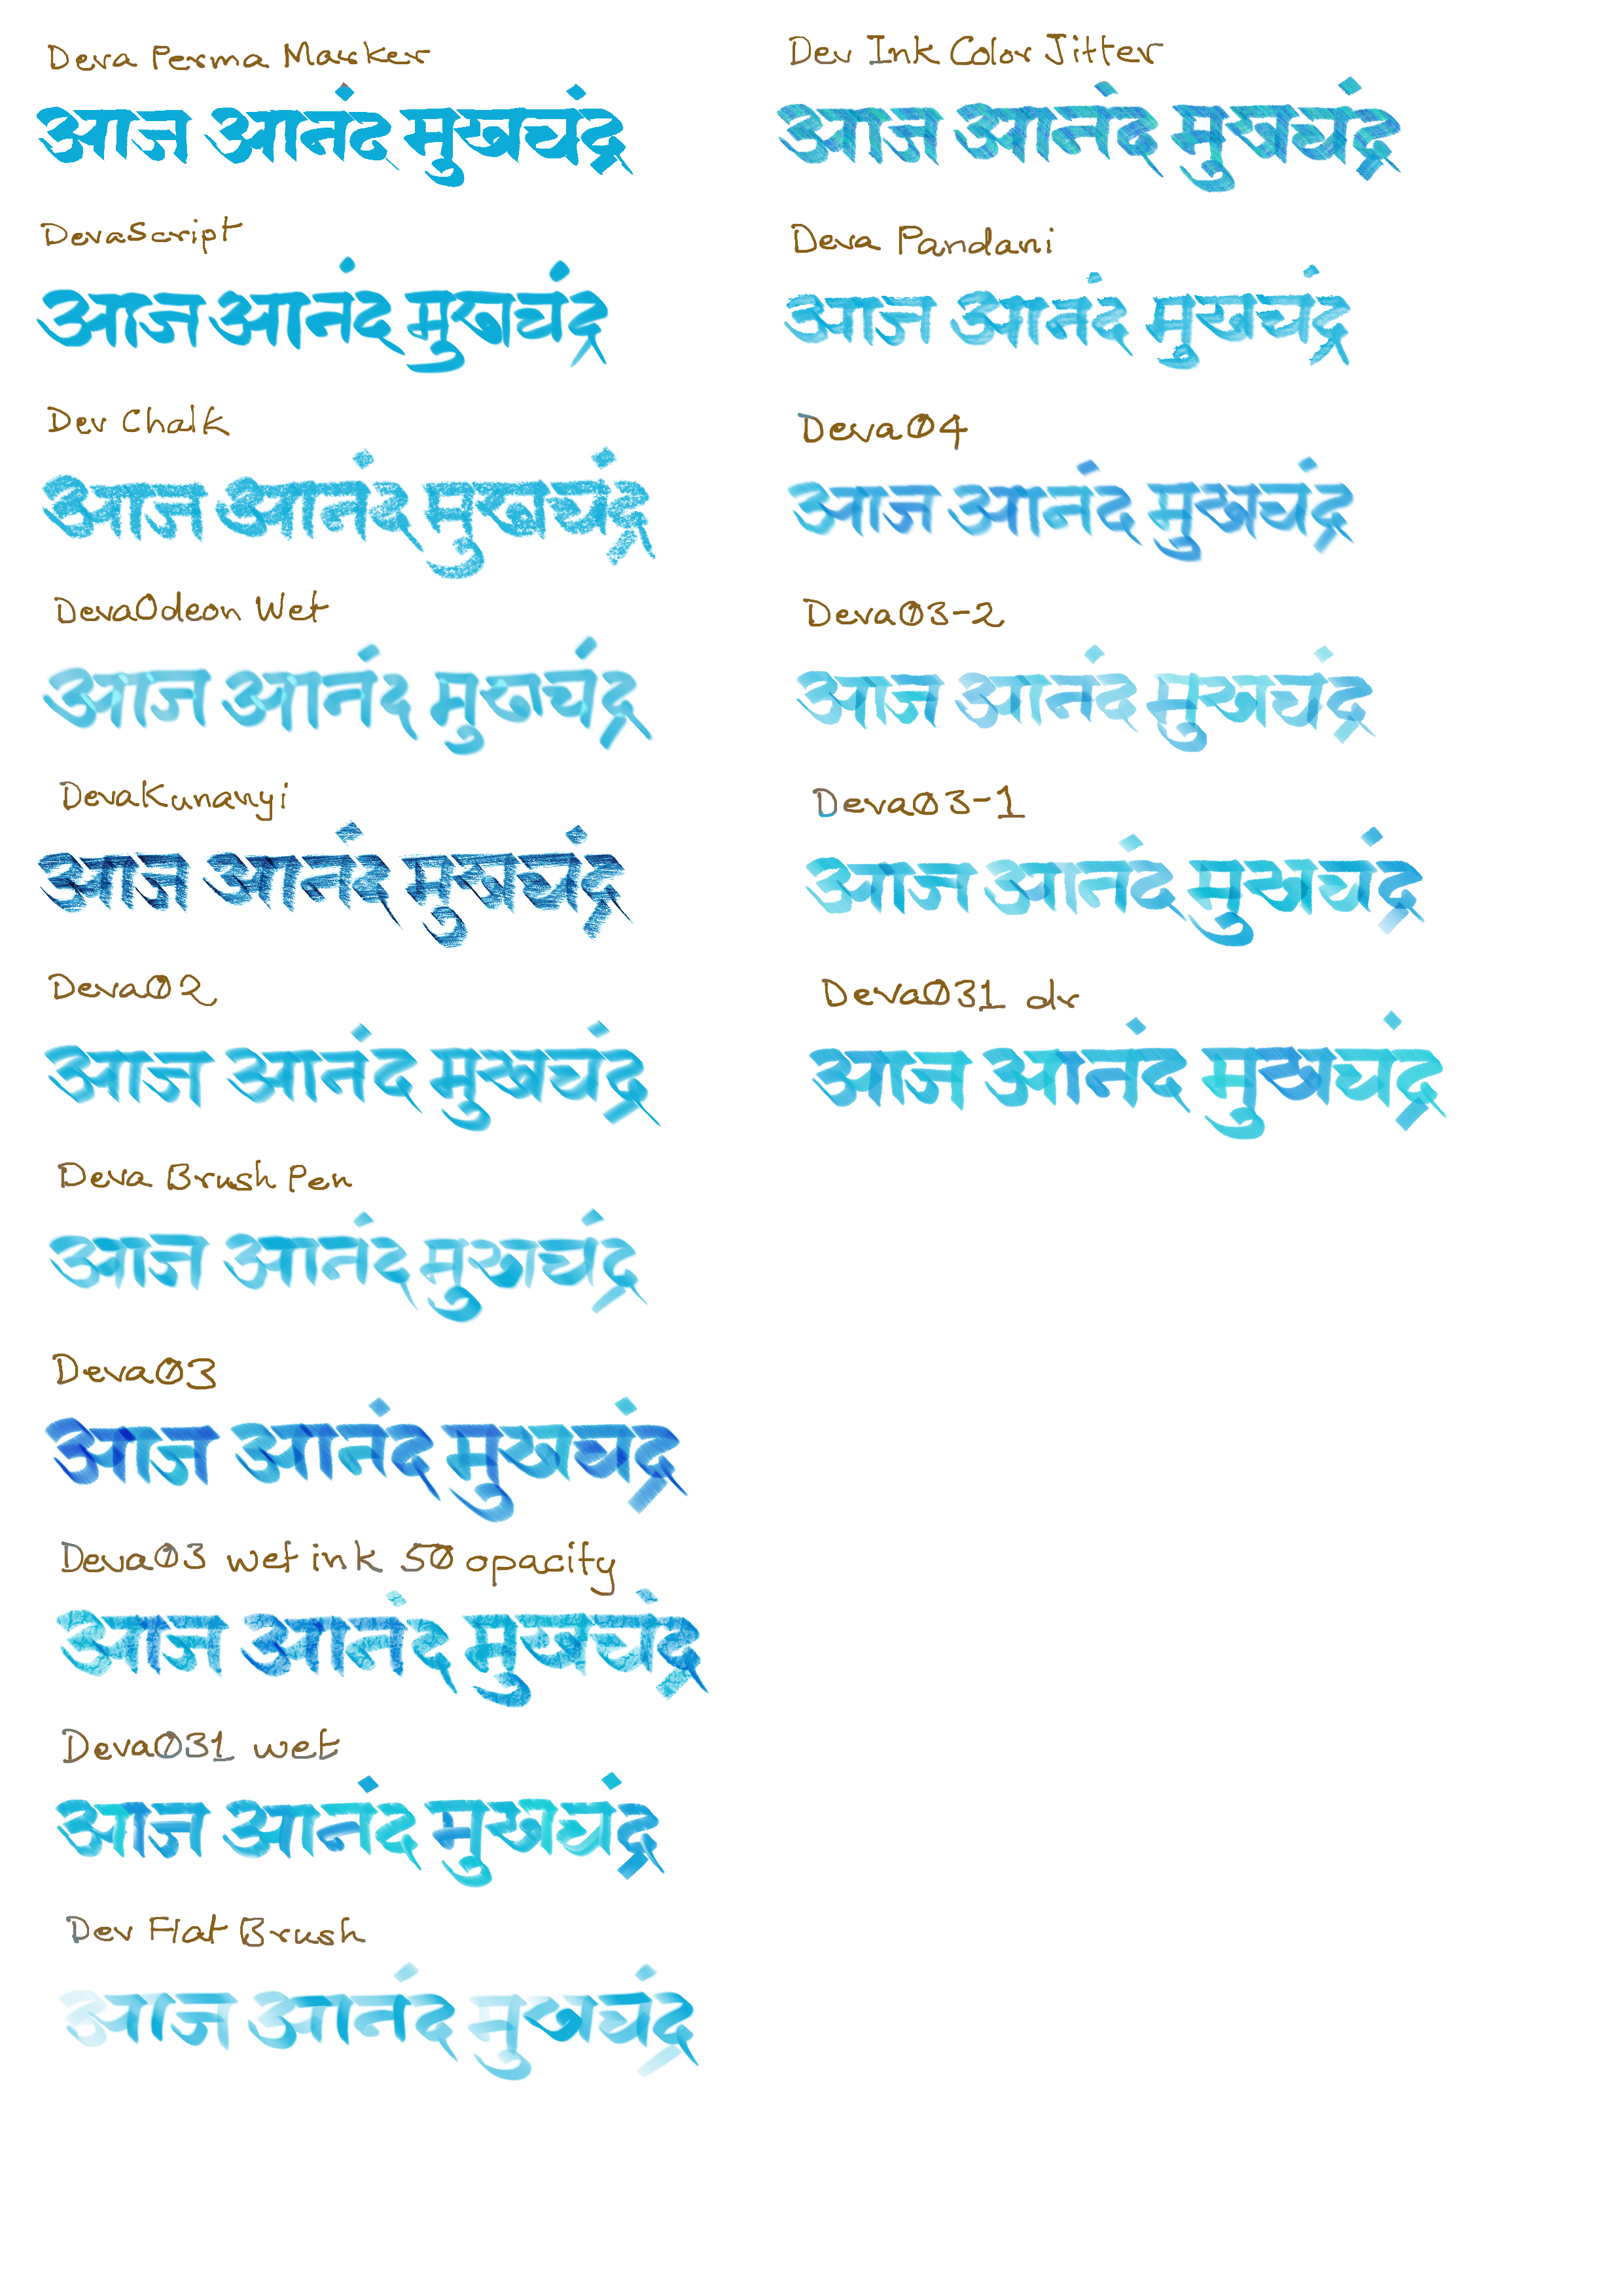 Deva Perma Marker
आज आनंद मुखचंद्र
DevaScript
आज आनंद मुखचंद्र
Dev Chalk
आज आनंद मुखचंद्र
DevaOdeon Wet
आज आनंद मुखचंद्र
DevaKunanyi
आज आनंद मुखचंद्र
Deva02
आज आनंद मुखचंद्र
Deva Brush Pen
आज आनंद मुखचंद्र
Deva03
आज आनंद मुखचंद्र
Deva03 wet ink 50 opacity
आज आनंद मुखचंद्र
Deva031 wet
आज आनंद मुखचंद्र
Dev Flat Brush
आज आनंद मुखचंद्र
Dev Ink Color Jitter
आज आनंद मुखचंद्र
Deva Pandani
आज आनंद मुखचंद्र
Deva04
आज आनंद मुखचंद्र
Deva03-2
आज आनंद मुखचंद्र
Deva03-1
आज आनंद मुखचंद्र
Deva031 dr
आज आनंद मुखचंद्र